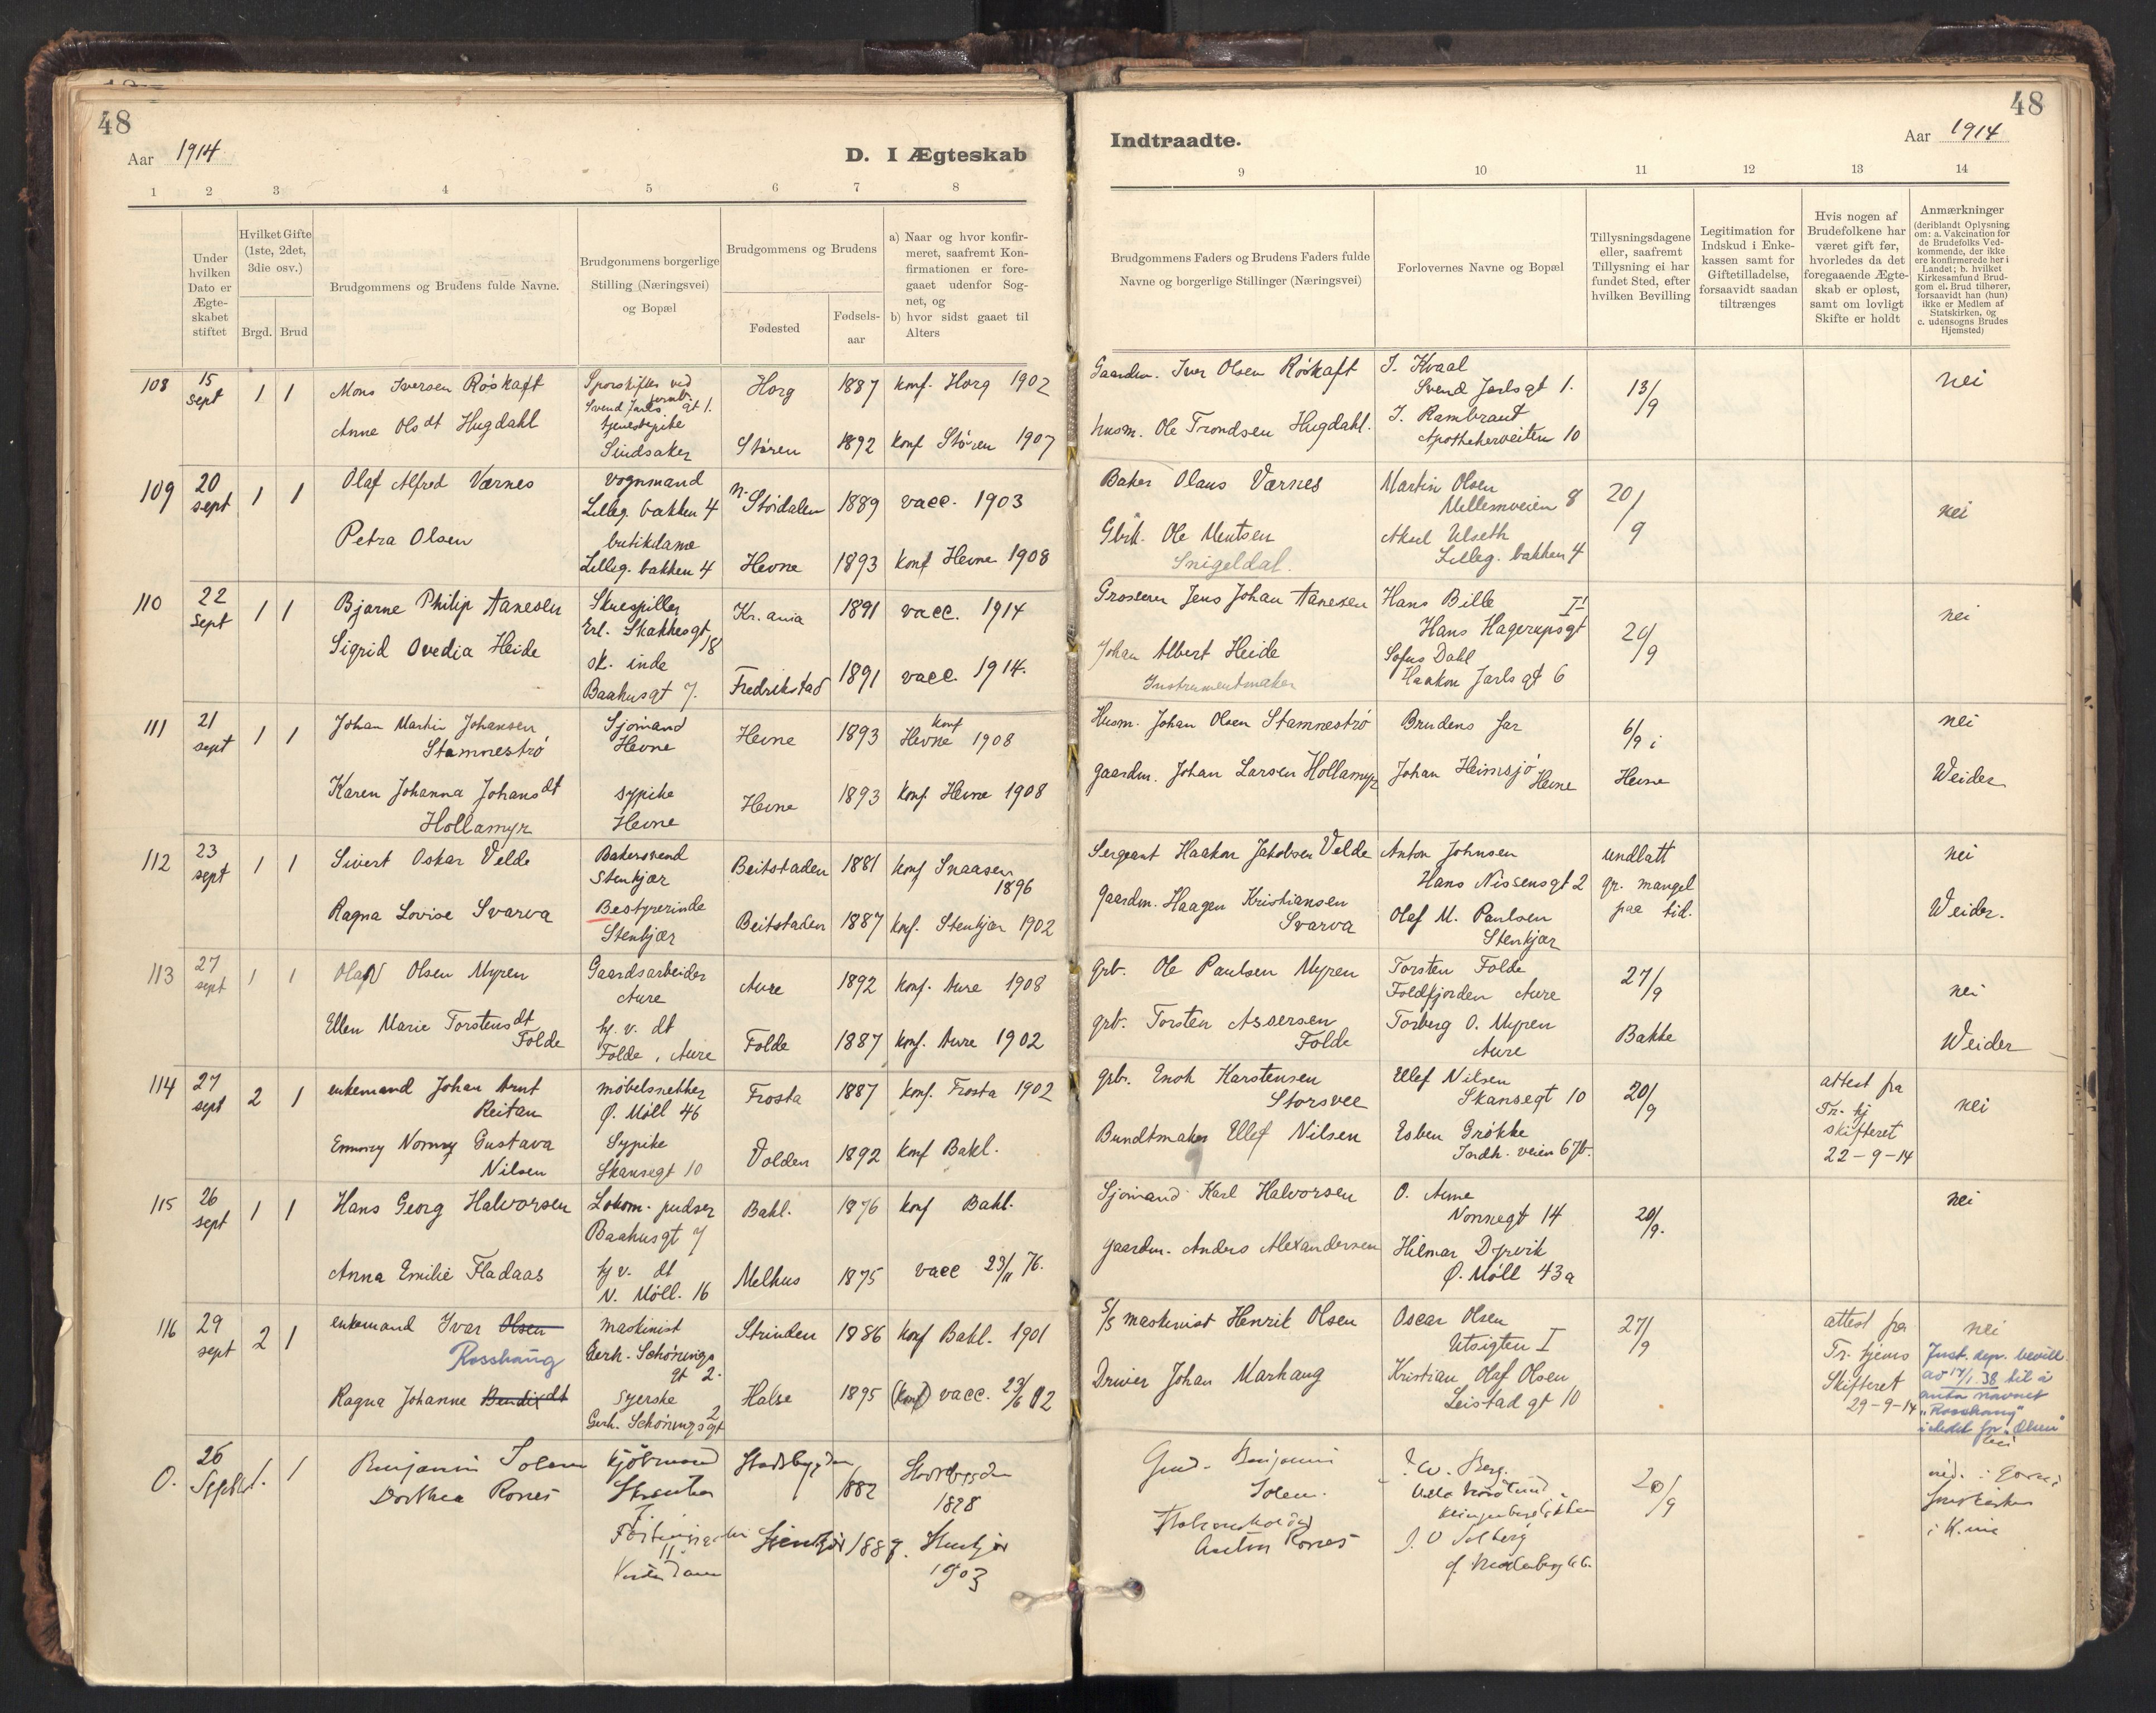 48
Aar 1914
D. I Ægteskab
1 2 3 4 5 6 7 8
Under hvilken Dato er Ægteskabet stiftet
Hvilket Gifte (1ste, 2det, 3die osv.)
Brgd. Brud
Brudgommens og Brudens fulde Navne.
Brudgommens borgerlige Stilling (Næringsvei) og Bopæl
Brudgommens og Brudens
Fødested
Fødsels-aar
a) Naar og hvor konfirmeret, saafremt Konfirmationen er foregaaet udenfor Sognet, og
b) hvor sidst gaaet til Alters
108 15 sept 1 1
Mons Iversen Röskaft
Sporskifter ved jernb.
Svend Jarls gt 1.
Horg 1887 konf. Horg 1902
Anne Olsdt Hugdahl
tjenestepike
Sindsaker
Stören 1892 konf Stören 1907
109 20 sept 1 1
Olaf Alfred Værnes
vognmand
Lilleg. bakken 4
N. Stördalen 1889 vacc. 1903
Petra Olsen
butikdame
Lilleg. bakken 4
Hevne 1893 konf Hevne 1908
110 22 sept 1 1
Bjarne Philip Aanesen
Skuespiller
Erl. Skakkesgt 18
Kr.ania 1891 vacc. 1914
Sigrid Ovedia Heide
sk. inde
Baahusgt 7.
Fredrikstad 1891 vacc. 1914.
111 21 sept 1 1
Johan Martin Johansen
Stamneströ
Sjömand
Hevne
Hevne 1893 konf Hevne 1908
Karen Johanna Johansdt
Hollamyr
sypike
Hevne
Hevne 1893 konf. Hevne 1908
112 23 sept 1 1
Sivert Oskar Velde
Bakersvend
Stenkjær
Beitstaden 1881 konf Snaasen 1896
Ragna Lovise Svarva
Bestyrerinde
Stenkjær
Beitstaden 1887 konf. Stenkjær 1902
113 27 sept 1 1
Olav Olsen Myren
Gaardsarbeider
Aure
Aure 1892 konf. Aure 1908
Ellen Marie Torstensdt
Folde
hj. v. dt
Folde, Aure
Folde 1887 konf. Aure 1902
114 27 sept 2 1
enkemand Johan Arnt
Reitan
möbelsnekker
Ø. Möll 46
Frosta 1887 konf. Frosta 1902
Emmy Gustava
Nilsen
Sypike
Skansegt 10
Volden 1892 konf Bakl.
115 26 sept 1 1
Hans Georg Halvorsen
Lokom. pudser
Baahusgt 7
Bakl. 1876 konf Bakl.
Anna Emilie Fladaas
hj v. dt
N. Möll. 16
Melhus 1875 vacc 23/11 76.
116 29 sept 2 1
enkemand Ivar Olsen
Rosshaug
maskinist
Gerh. Schönings gt 2.
Strinden 1886 konf Bakl. 1901
Ragna Johanne Bendixdt
syerske
Gerh. Schönings gt 2
Halse 1895 (konf) vacc. 23/6 02
O. 26 Septbr 1. 1
Benjamin Solem
Kjöbmand
Stadsbygden 1882 Stadsbygden 1898
Dorthea Rones
Stenkjær 1887. Stenkjær 1903
48
Indtraadte.
Aar 1914
9 10 11 12 13 14
Brudgommens Faders og Brudens Faders fulde Navne og borgerlige Stillinger (Næringsvei)
Forlovernes Navne og Bopæl
Tillysningsdagene eller, saafremt Tillysning ei har fundet Sted, efter hvilken Bevilling
Legitimation for Indskud i Enkekassen samt for Giftetilladelse, forsaavidt saadan tiltrænges
Hvis nogen af Brudefolkene har været gift før, hvorledes da det foregaaende Ægteskab er opløst, samt om lovligt Skifte er holdt
Anmærkninger
(deriblandt Oplysning om: a. Vakcination for de Brudefolks Vedkommende, der ikke ere konfirmerede her i Landet; b. hvilket Kirkesamfund Brudgom el. Brud tilhører, forsaavidt han (hun) ikke er Medlem af Statskirken, og c. udensogns Brudes Hjemsted)
Gaardm. Iver Olsen Röskaft
J. Kvaal
Svend Jarlsgt 1.
13/9
nei
husm. Ole Trondsen Hugdahl.
J. Rambraut
Apothekerveiten 10
Baker Olaus Værnes
Martin Olsen
Mellemveien 8
20/9
nei
Gbrk. Ole Mentsen
Snigeldal.
Aksel Ulseth
Lilleg. bakken 4
Grosserer Jens Johan Aanesen
Hans Bille
Hans Hagerupsgt II
20/9
nei
Johan Albert Heide
Instrumentmaker
Sofus Dahl
Haakon Jarls gt 6
Husm. Johan Olsen Stamneströ
Brudens far
6/9 i
Hevne
nei
gaardm. Johan Larsen Hollamyr
Johan Heimsjö
Hevne
Weider
Sergeant Haakon Jakobsen Velde
Anton Johnsen
Hans Nissensgt 2
undlatt
gr. mangel
paa tid.
nei
Gaardm. Haagen Kristiansen
Svarva
Olaf M. Paulsen
Stenkjær
Weider.
grb. Ole Paulsen Myren
Torsten Folde
Foldfjorden Aure
27/9
Bakke
nei
grb. Torsten Assersen
Folde
Torberg O. Myren
Aure
Weider
grb. Enok Karstensen
Storsvee
Ellef Nilsen
Skansegt 10
20/9
attest fra
Tr. hj
skifteret
22-9-14
nei
Bundtmaker Ellef Nilsen
Esben Grökke
Indh. veien 67b.
Sjömand Karl Halvorsen
O. Aune
Nonnegt 14
20/9.
nei
gaardm. Anders Alexandersen
Hilmar Dyrvik
Ø. Möll 43a
S/S maskinist Henrik Olsen
Oscar Olsen
Utsigten I
27/9
attest fra
Tr. hjems
Skifteret
29-9-14
nei
Just. dep. bevill.
av 17/1. 38 til å
anta navnet
"Rosshaug"
istedet for "Olsen"
Driver Johan Marhaug
Kristian Olaf Olsen
Leistad gt 10
Gmd. Benjamin
Solem.
20/9
Anton Rones